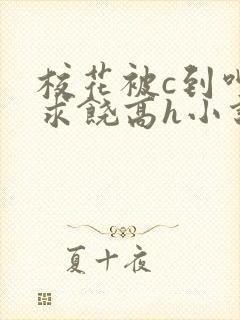 校花被c到
求饶高h小
夏十夜